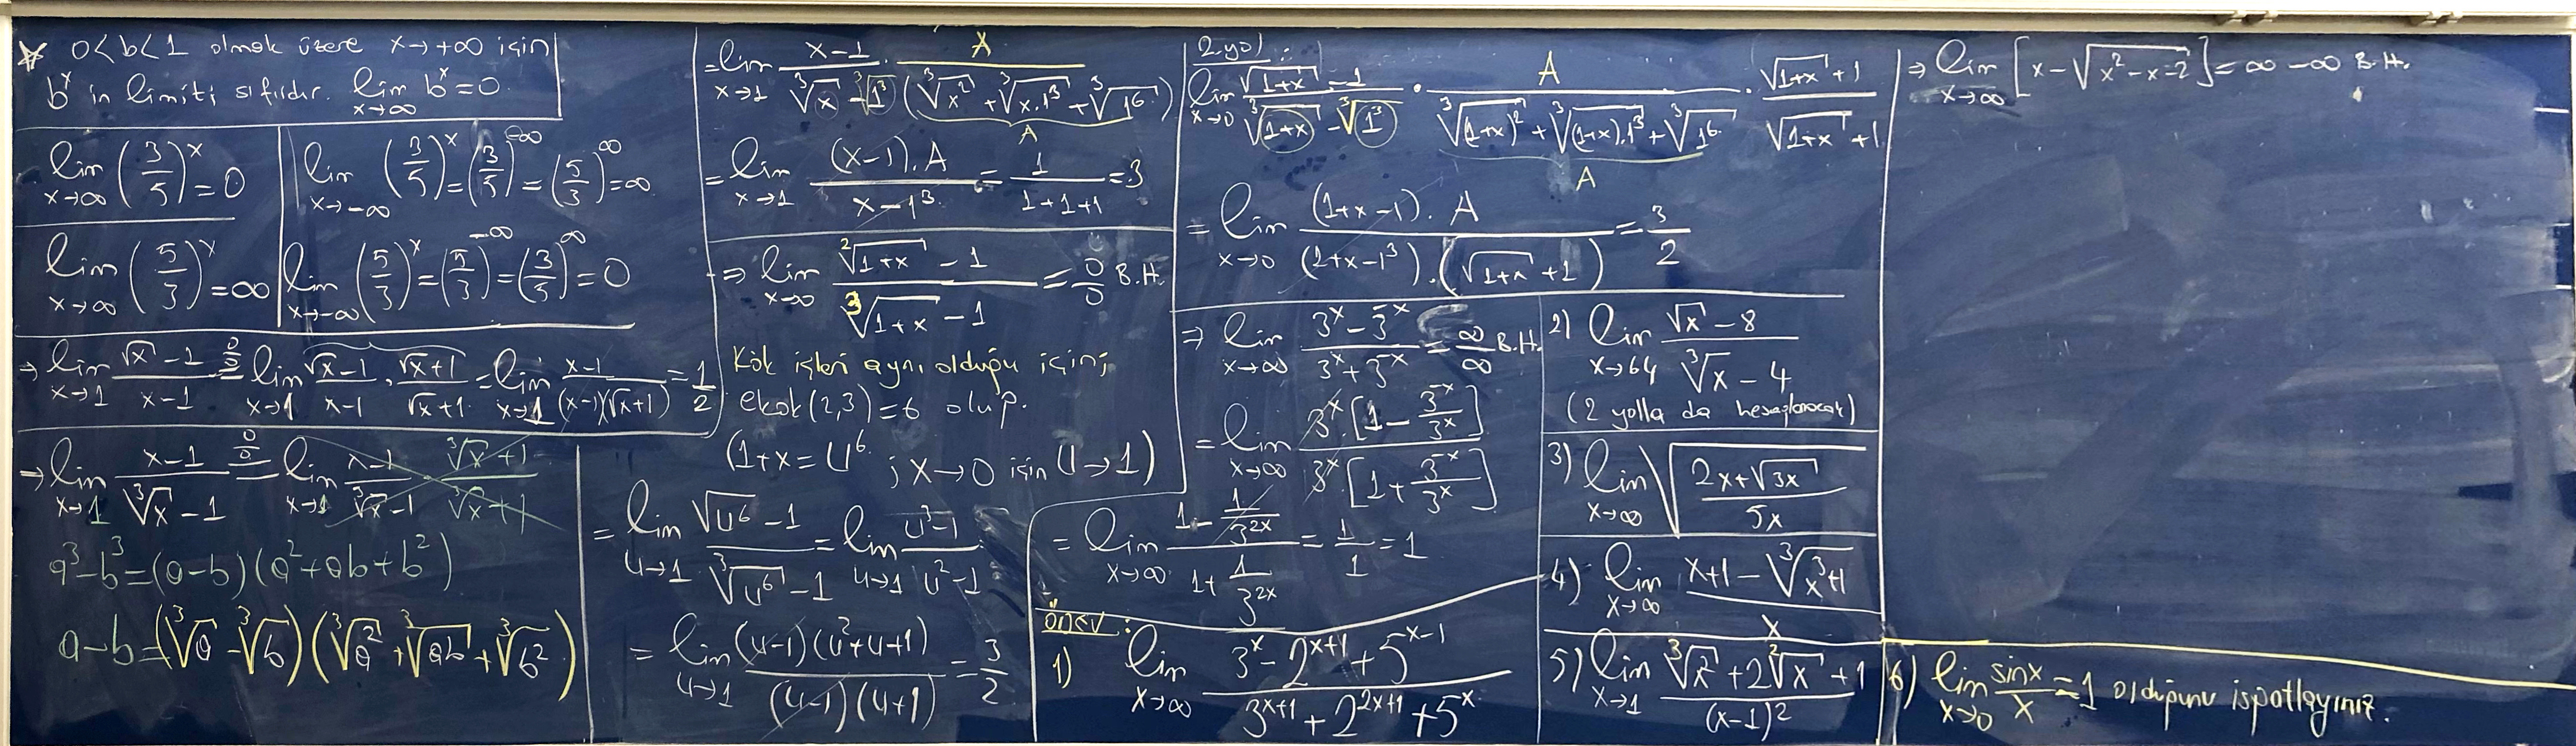 ☆ 0<b<1 olmak üzere x→+∞ için
b^x in limiti sıfırdır. lim_{x→∞} b^x = 0
lim_{x→∞} (3/5)^x = 0
lim_{x→-∞} (3/5)^x = (3/5)^{-∞} = (5/3)^∞ = ∞
lim_{x→∞} (5/3)^x = ∞
lim_{x→-∞} (5/3)^x = (5/3)^{-∞} = (3/5)^∞ = 0
⇒ lim_{x→1} (√x - 1)/(x-1) =^{0/0} lim_{x→1} (√x-1)/(x-1) . (√x+1)/(√x+1) = lim_{x→1} (x-1)/((x-1)(√x+1)) = 1/2
⇒ lim_{x→1} (x-1)/(∛x - 1) =^{0/0} lim_{x→1} (x-1)/(∛x-1) (∛x+1)/(∛x+1)
a³-b³=(a-b)(a²+ab+b²)
a-b=(∛a-∛b)(∛a²+∛ab+∛b²)
= lim_{x→1} (x-1)/(∛x - ∛1³) . A/(∛x² + ∛x.1³ + ∛1⁶)
A
= lim_{x→1} ((x-1).A)/(x-1³) = 1/(1+1+1) = 3
⇒ lim_{x→0} (²√1+x - 1)/(∛1+x - 1) = 0/0 B.H.
Kök içleri aynı olduğu için;
ekok(2,3)=6 olup.
(1+x=U⁶ ; x→0 için U→1)
= lim_{U→1} (√U⁶ - 1)/(∛U⁶ - 1) = lim_{U→1} (U³-1)/(U²-1)
= lim_{U→1} ((U-1)(U²+U+1))/((U-1)(U+1)) = 3/2
2.yol:
lim_{x→0} (√1+x - 1)/(∛1+x - ∛1³) . A/(∛(1+x)² + ∛(1+x).1³ + ∛1⁶) . (√1+x + 1)/(√1+x + 1)
A
= lim_{x→0} ((1+x-1).A)/((1+x-1³).(√1+x + 1)) = 3/2
⇒ lim_{x→∞} (3^x - 3^{-x})/(3^x + 3^{-x}) = ∞/∞ B.H.
= lim_{x→∞} (3^x.[1 - 3^{-x}/3^x])/(3^x.[1 + 3^{-x}/3^x])
= lim_{x→∞} (1 - 1/3^{2x})/(1 + 1/3^{2x}) = 1/1 = 1
ödev:
1) lim_{x→∞} (3^x - 2^{x+1} + 5^{x-1})/(3^{x+1} + 2^{2x+1} + 5^x)
2) lim_{x→64} (√x - 8)/(∛x - 4)
(2 yolla da hesaplanacak)
3) lim_{x→∞} √((2x+√3x)/5x)
4) lim_{x→∞} (x+1 - ∛x³+1)/x
5) lim_{x→1} (∛x² + 2²√x + 1)/(x-1)²
⇒ lim_{x→∞} [x - √x²-x-2] = ∞ - ∞ B.H.
6) lim_{x→0} sinx/x = 1 olduğunu ispatlayınız.